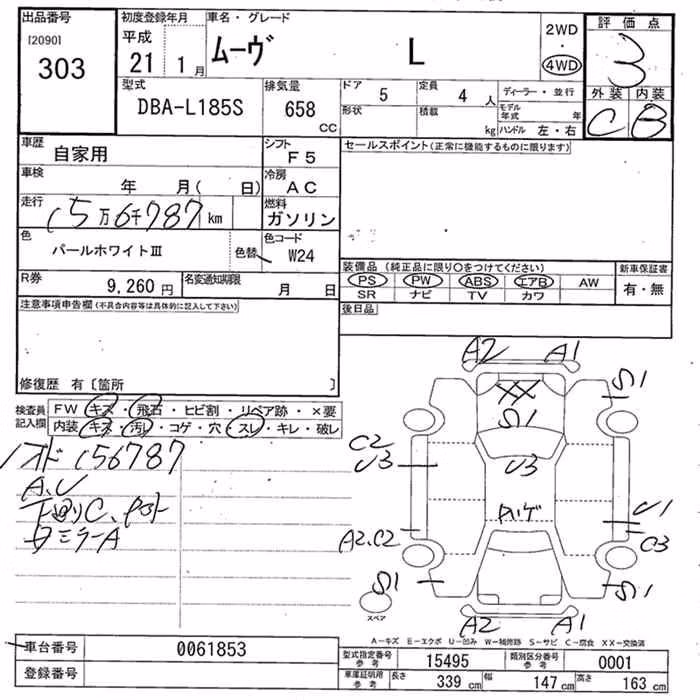 出品番号 初度登録年月 車名・グレード 2WD ・ 4WD 評価点
[2090] 303 平成 21 1月 ムーヴ L 3
型式 排気量 ドア 5 定員 4人 ディーラー・並行 外装 内装
DBA-L185S 658 CC 形状 積載 kg モデル年式 年 C B
ハンドル 左・右
車歴 自家用 シフト F5 セールスポイント(正常に機能するものに限ります)
車検 年 月( 日) 冷房 AC
走行 (5万6千787km 燃料 ガソリン
色 パールホワイトⅢ 色替 色コード W24
装備品 (純正品に限り○をつけてください) 新車保証書
R券 9,260円 名変通知期限 月 日 PS PW ABS エアB AW 有・無
SR ナビ TV カワ
注意事項申告欄(不具合内容等は具体的に記入して下さい) 後日品
修復歴 有〔箇所
検査員記入欄 FW キズ・飛石・ヒビ割・リペア跡・×要
内装 キズ・汚レ・コゲ・穴・スレ・キレ・破レ
A2 A1
S1
XX
S1
C2
U3 U3
ハゲ U1
A2.C2 C3
S1 S1
スペア
A2 A1
オド (56787
A、U
下廻りC、
ミラーA
A－キズ E－エクボ U－凹み W－補修跡 S－サビ C－腐食 XX－交換済
車台番号 0061853
登録番号
型式指定番号 参考 15495 類別区分番号 参考 0001
車庫証明用 参考 長さ 339cm 幅 147cm 高さ 163cm